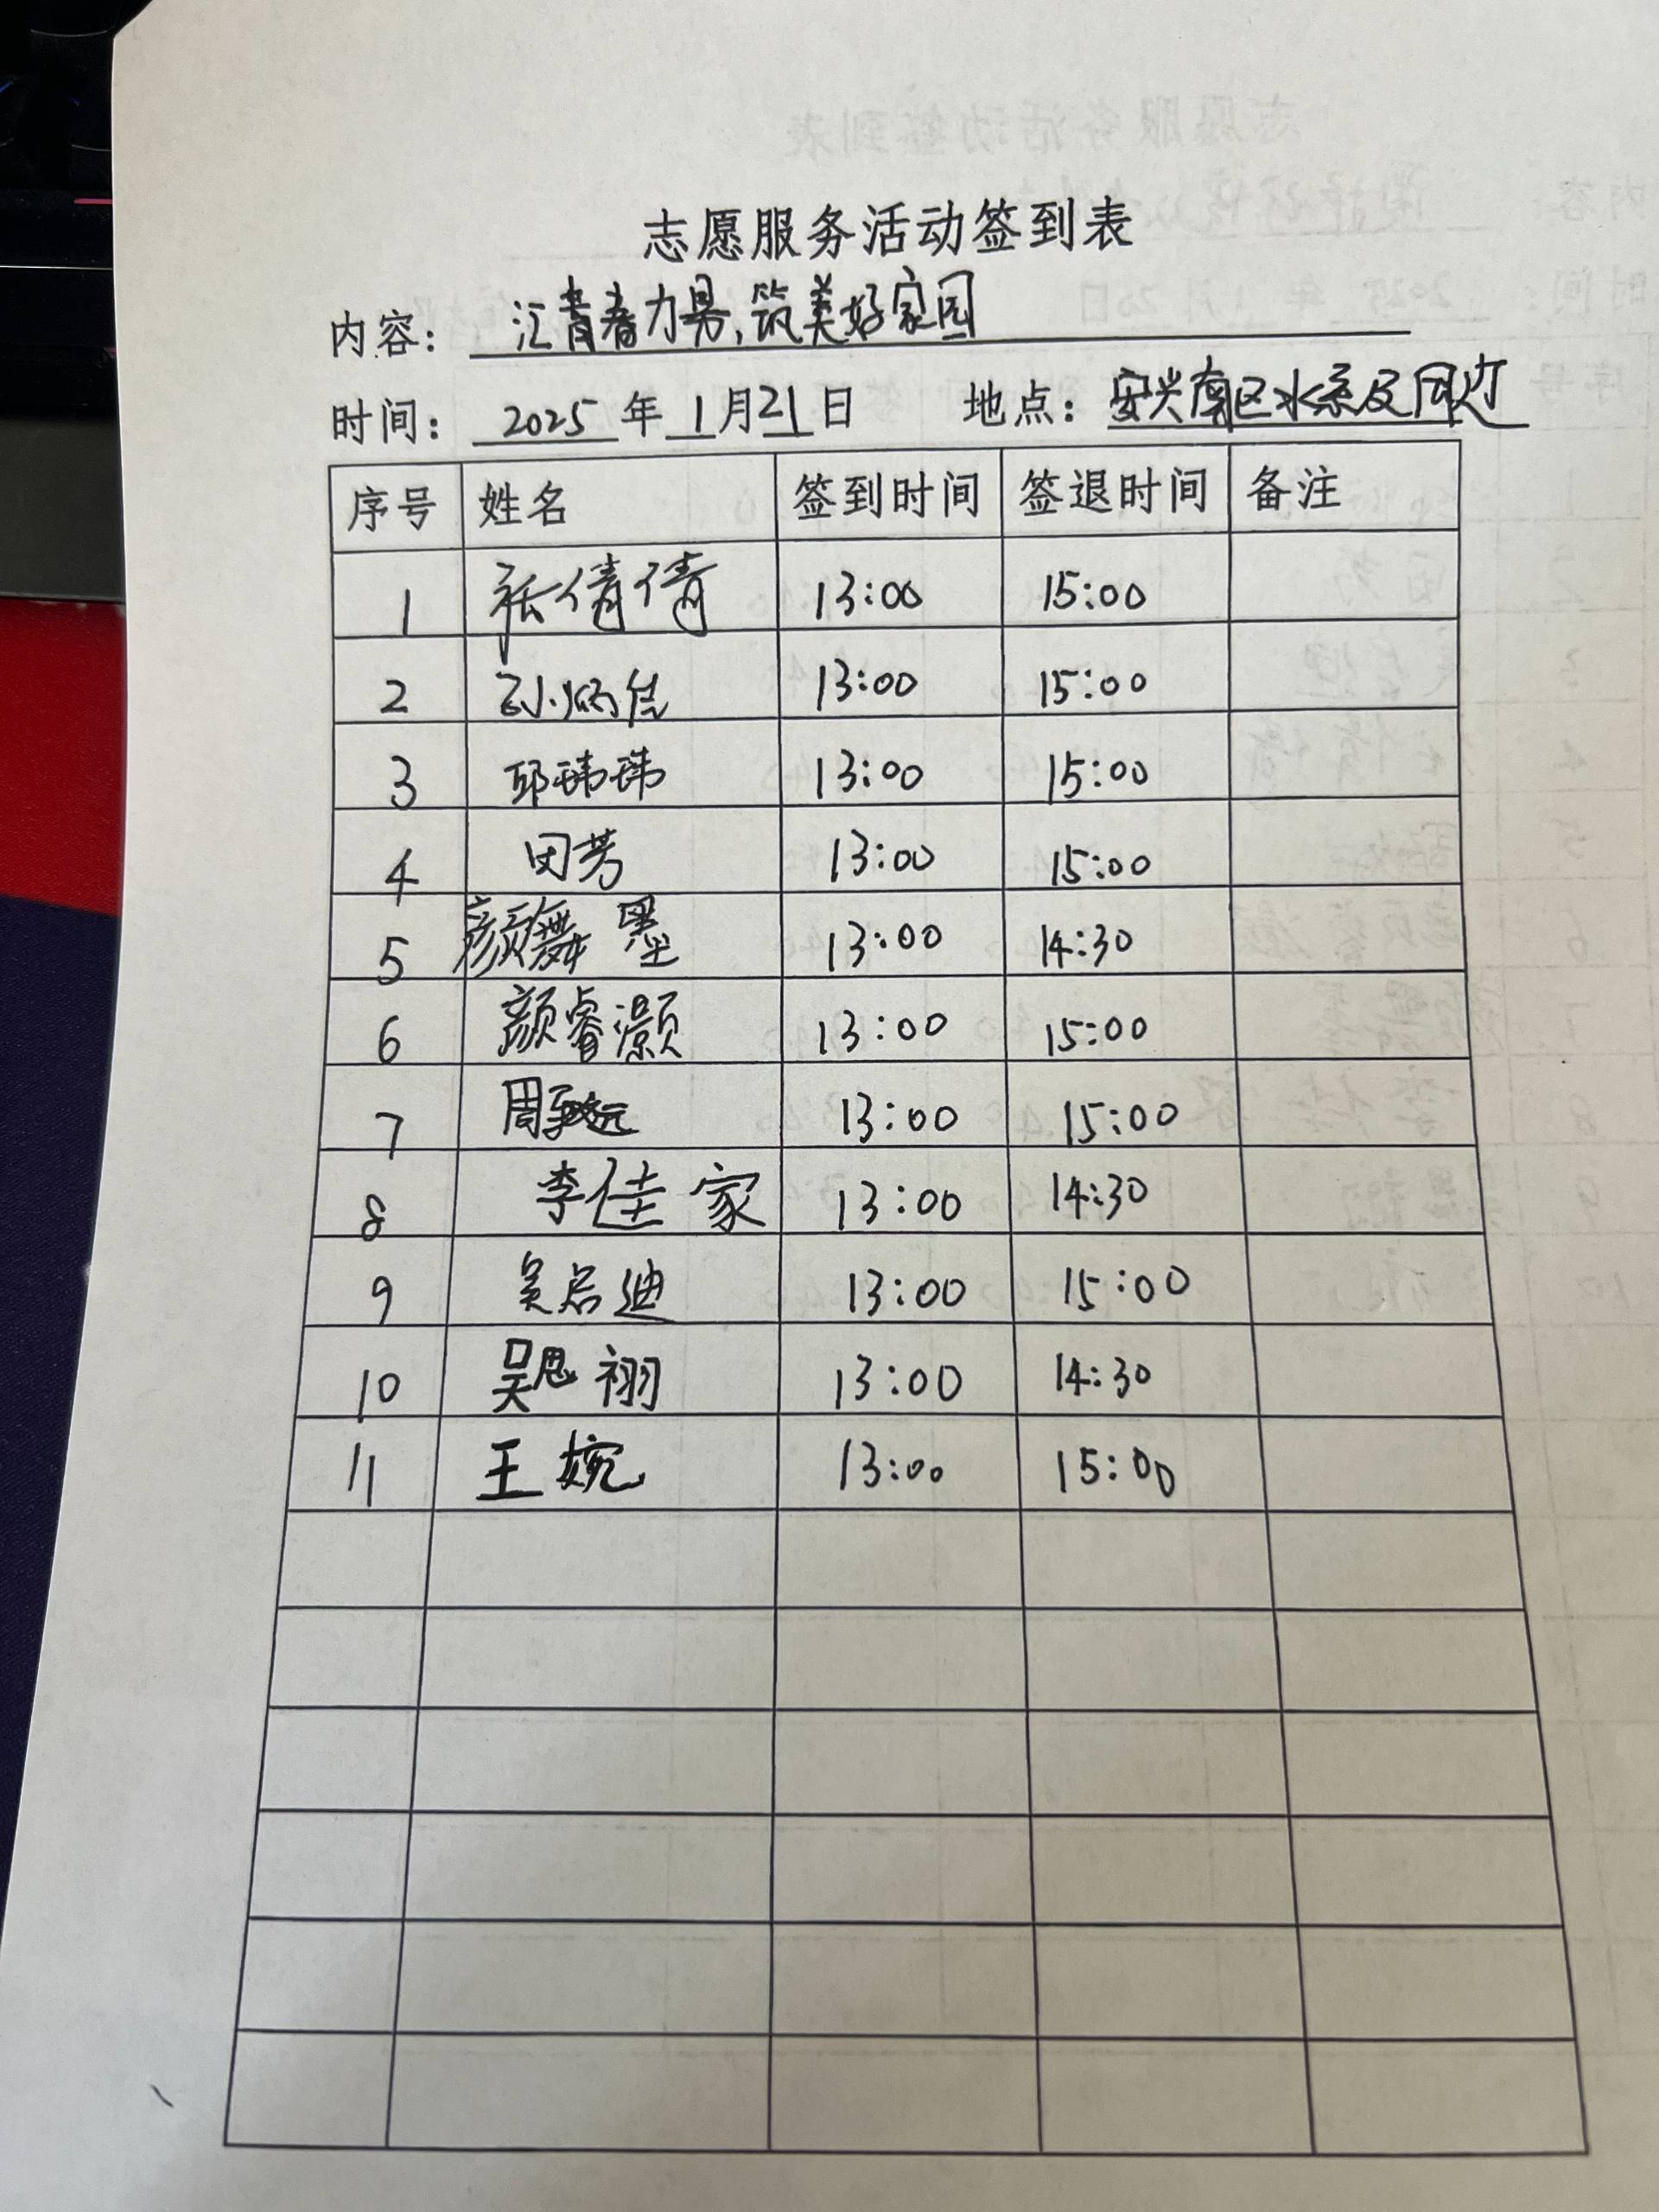 志愿服务活动签到表
内容： 汇青春力量，筑美好家园
时间： 2025 年 1 月 21 日 地点：安兴南区水系及周边
序号 姓名 签到时间 签退时间 备注
1 张倩倩 13:00 15:00
2 孙炳佳 13:00 15:00
3 邱玮玮 13:00 15:00
4 田芳 13:00 15:00
5 颜舞墨 13:00 14:30
6 颜睿灏 13:00 15:00
7 周致远 13:00 15:00
8 李佳家 13:00 14:30
9 吴启迪 13:00 15:00
10 吴思祤 13:00 14:30
11 王婉 13:00 15:00